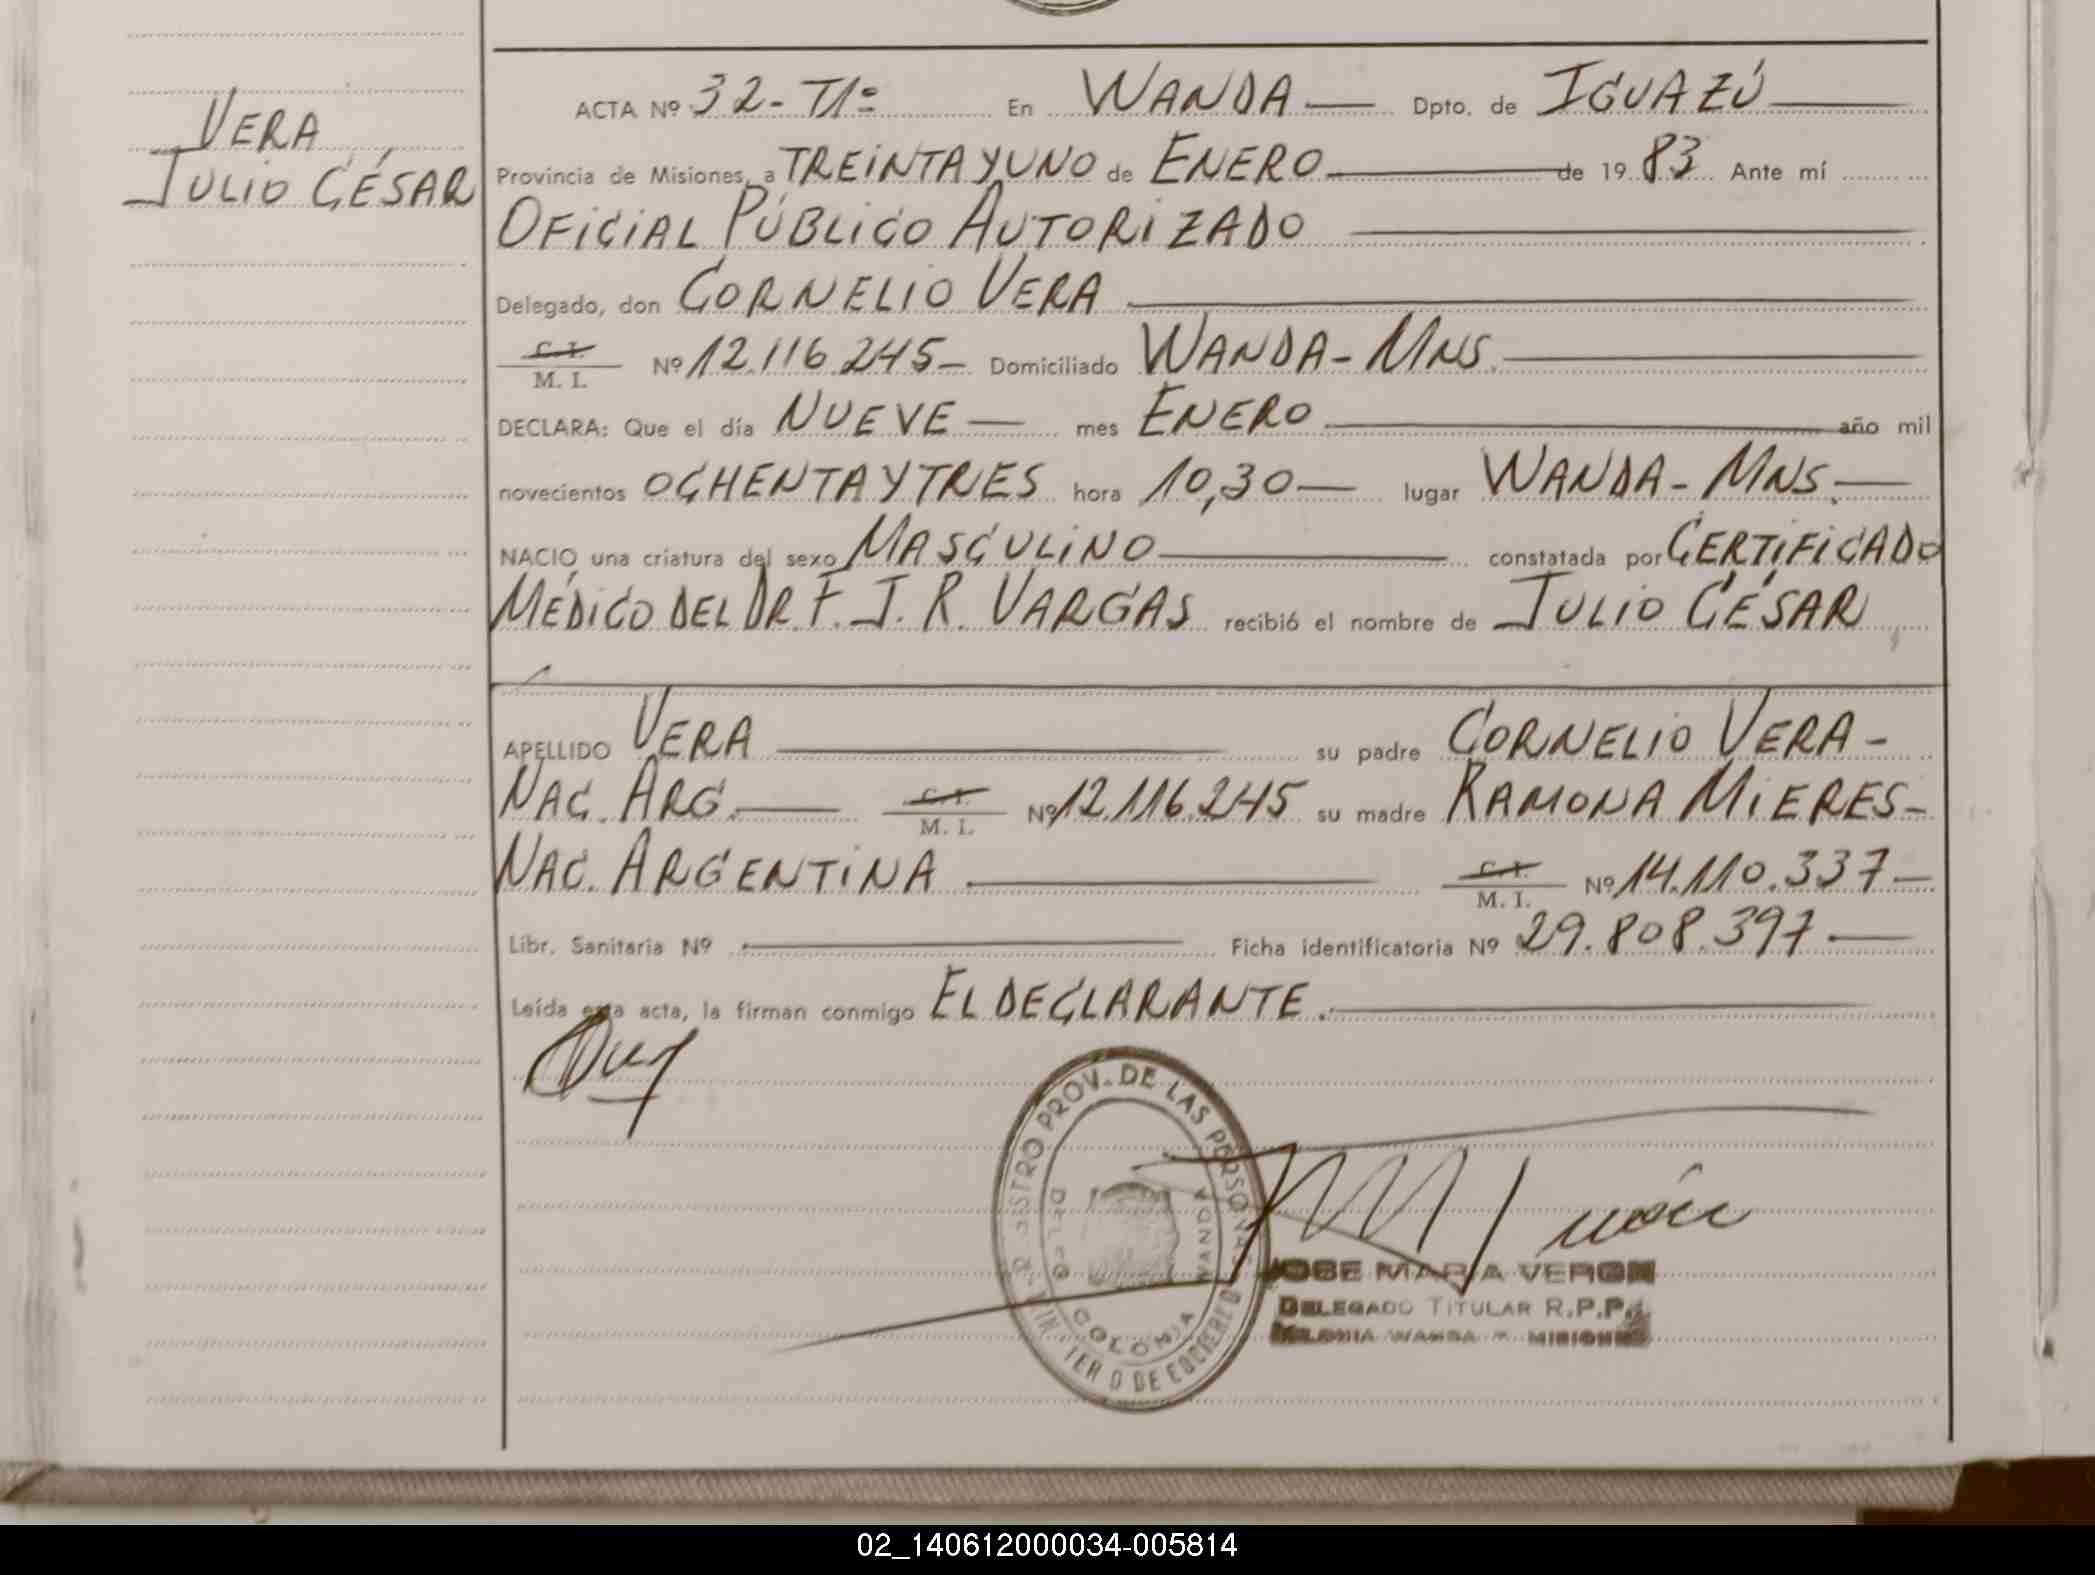 VERA
JULIO CÉSAR
ACTA Nº 32- Tº En WANDA Dpto. de IGUAZÚ
Provincia de Misiones, a TREINTA Y UNO de ENERO de 19 83 Ante mí
OFICIAL PÚBLICO AUTORIZADO
Delegado, don CORNELIO VERA
C. I.
M. I. Nº 12.116.245- Domiciliado WANDA- MNS.
DECLARA: Que el día NUEVE mes ENERO año mil
novecientos OCHENTA Y TRES hora 10,30 lugar WANDA- MNS.
NACIO una criatura del sexo MASCULINO constatada por CERTIFICADO
MÉDICO DEL DR. F. J. R. VARGAS recibió el nombre de JULIO CÉSAR
APELLIDO VERA su padre CORNELIO VERA-
NAC. ARG. C. I. M. I. Nº 12.116.245 su madre RAMONA MIERES-
NAC. ARGENTINA C. I. M. I. Nº 14.110.337-
Libr. Sanitaria Nº Ficha identificatoria Nº 29.808.397-
Leída esta acta, la firman conmigo EL DECLARANTE.
PROV. DE LAS PERSONAS
DELEG
WANDA
COLONIA
JOSE MARIA VERON
DELEGADO TITULAR R.P.P.
COLONIA WANDA - MISIONES
02_140612000034-005814